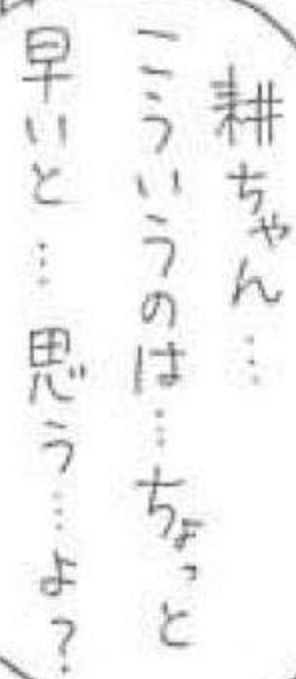 耕ちゃん…
こういうのは…ちょっと
早いと…思う…よ？